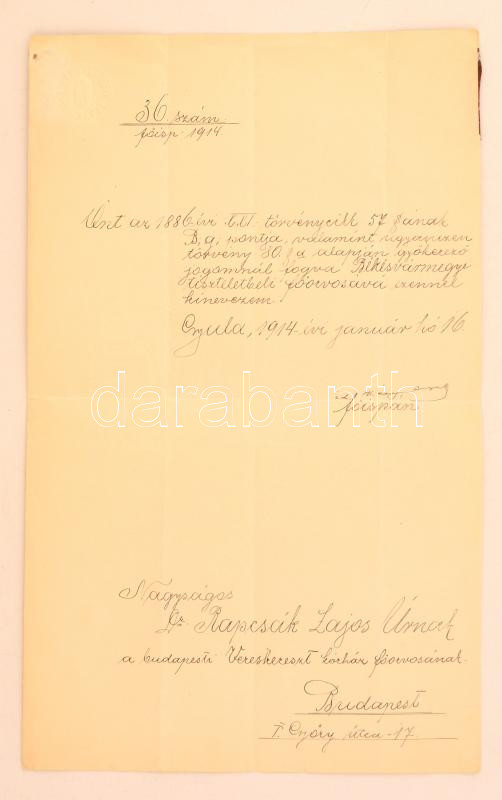 36 szám.
főisp. 1914.
Önt az 1886 évi XXI. törvénycikk 57 §-ának
B, g, pontja, valamint ugyanezen
törvény 80. § a alapján gyökerező
jogomnál fogva Békésvármegye
tiszteletbeli főorvosává ezennel
kinevezem.
Gyula, 1914 évi január hó 16.
főispán
darabanth
Nagyságos
Dr. Rapcsák Lajos Úrnak
a budapesti Vereskereszt kórház főorvosának
Budapest
I. Győry utca 17.